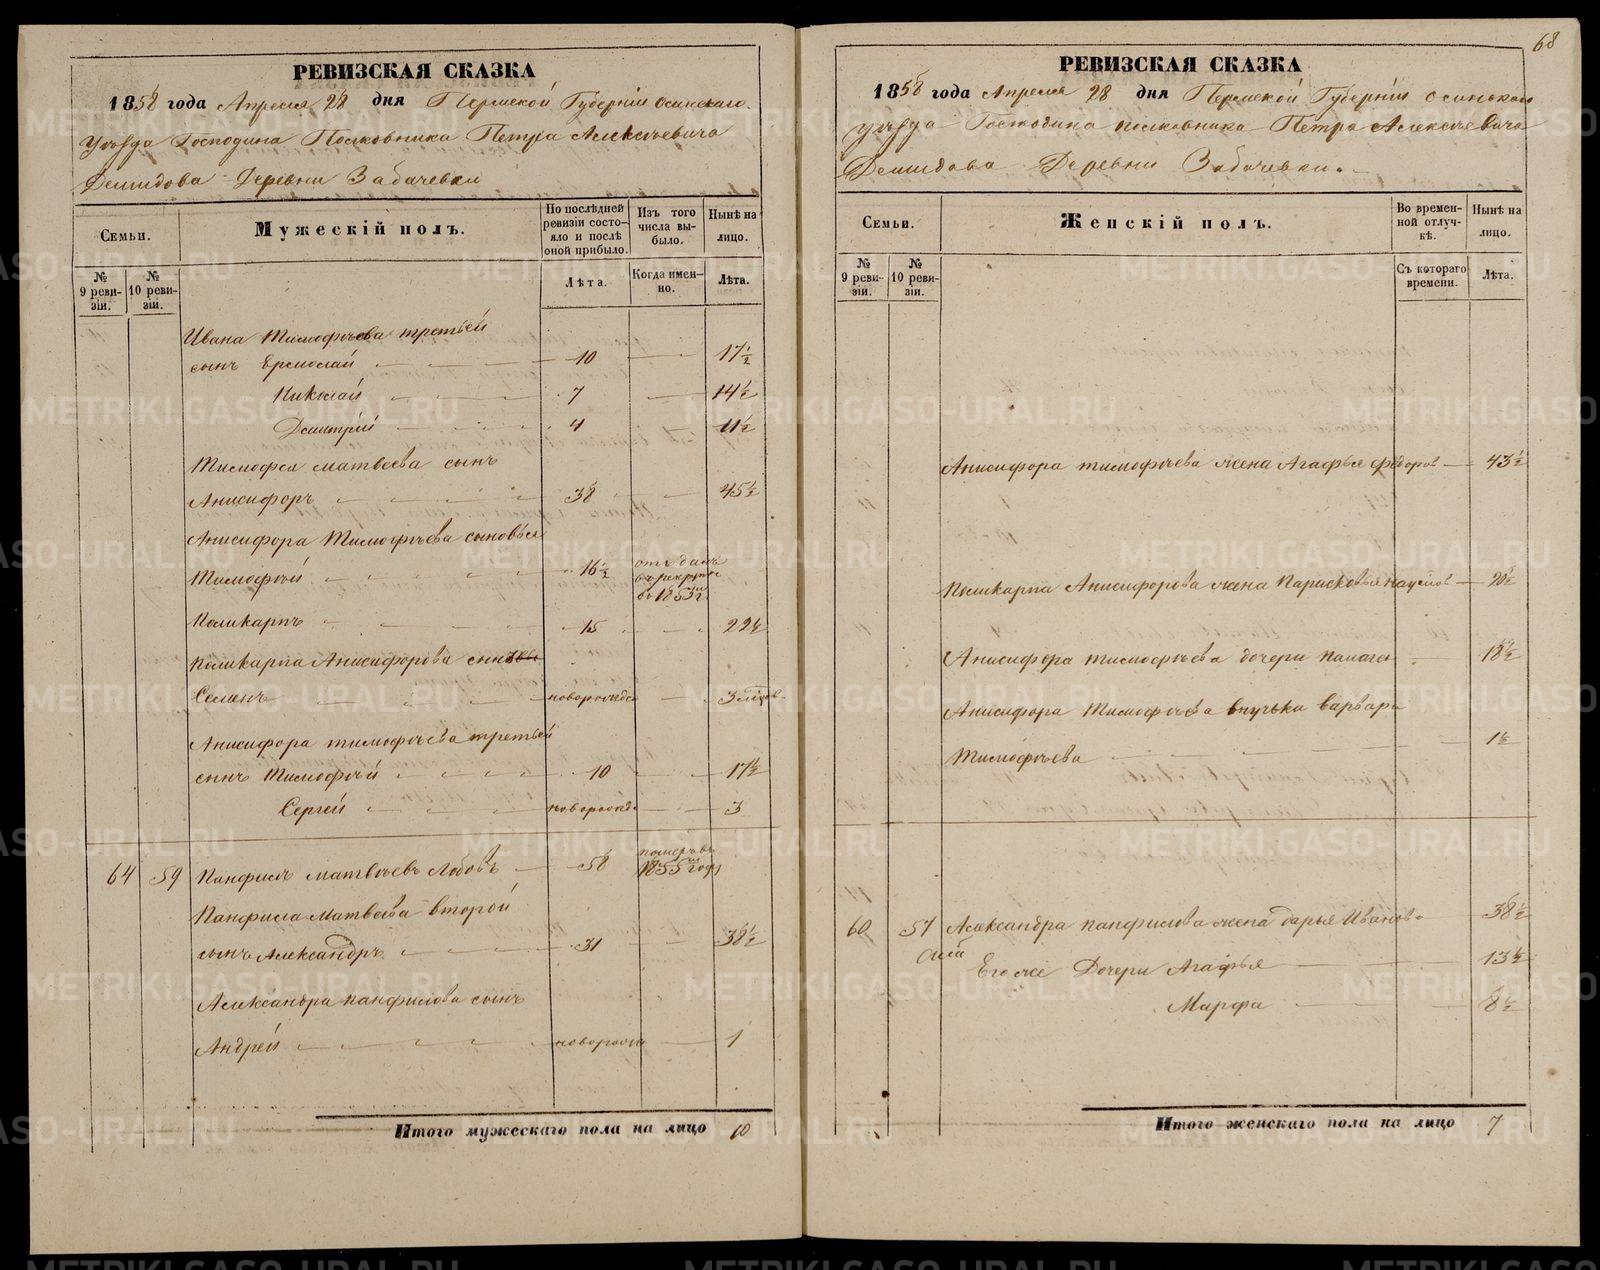 РЕВИЗСКАЯ СКАЗКА
1858 года Апреля 28 дня Пермской Губерніи Осинскаго
уѣзда Господина Полковника Петра Алексѣевича
Демидова Деревни Забачевки
Семьи.
Мужескій полъ.
По послѣдней ревизіи состояло и послѣ оной прибыло.
Изъ того числа выбыло.
Нынѣ на лицо.
№ 9 ревизіи.
№ 10 ревизіи.
Лѣта.
Когда именно.
Лѣта.
Ивана Тимофѣева третьей
сынъ Ермолай 10 17½
Николай 7 14½
Дмитрій 4 11½
Тимофея матвеева сынъ
Анисифоръ 38 45½
Анисифора Тимофѣева сыновья
Тимофѣй 16½ отъ данъ
в рекруты
въ 1853
Поликарпъ 15 22½
Поликарпа Анисифорова сынъ
Семенъ новорожде 3 мѣсяцов
Анисифора тимофѣева третьей
сынъ Тимофѣй 10 17½
Сергей новорожде 3
64 59 Панфилъ матвѣевъ Лобовъ 58 померъ въ
1855 году
Панфила Матвеева второй
сынъ Александръ 31 38½
Александра панфилова сынъ
Андрей новорожде 1
Итого мужескаго пола на лицо 10
68
РЕВИЗСКАЯ СКАЗКА
1858 года Апреля 28 дня Пермской Губерніи осиньскаго
уѣзда Господина полковника Петра Алексѣевича
Демидова Деревни Забачевки.
Семьи.
Женскій полъ.
Во временной отлучкѣ.
Нынѣ на лицо.
№ 9 ревизіи.
№ 10 ревизіи.
Съ котораго времени.
Лѣта.
Анисифора тимофѣева жена Агафья федоров 43½
Поликарпа Анисифорова жена Парасковья наумов 20½
Анисифора тимофѣева дочери палагея 18½
Анисифора Тимофѣева внучька варвара
Тимофѣева 1½
60 57 Александра панфилова жена дарья Иванова 38½
Его же Дочери Агафья 13½
Марфа 8½
Итого женскаго пола на лицо 7
METRIKI.GASO-URAL.RU